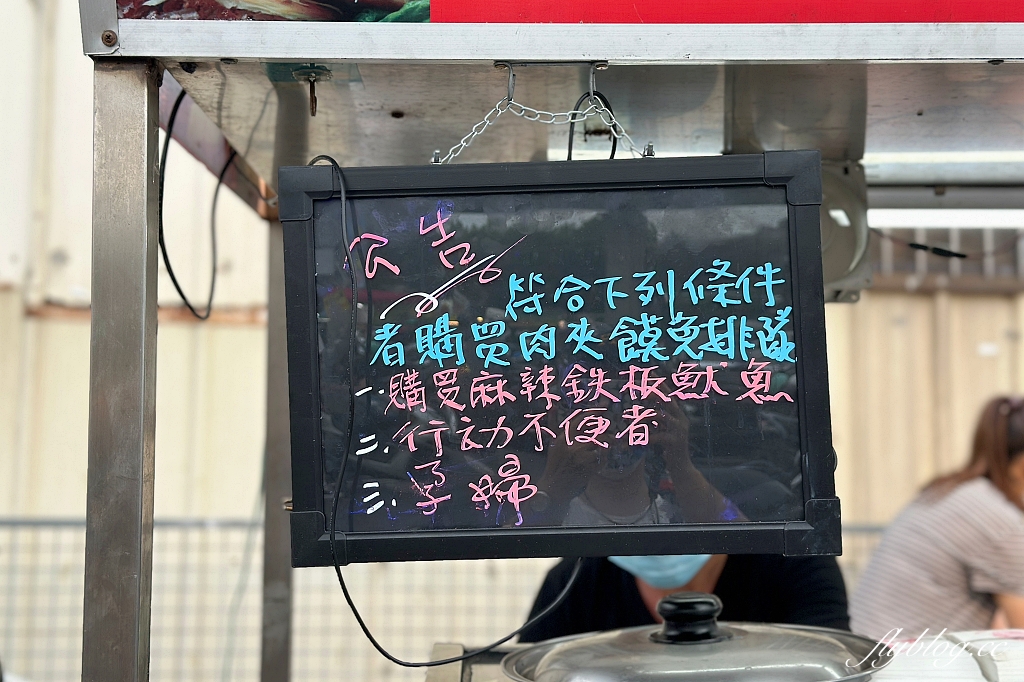 公告
符合下列條件
者購買肉夾饃免排隊
一.購買麻辣鉄板魷魚
二.行动不便者
三.孕婦
flyblog.cc